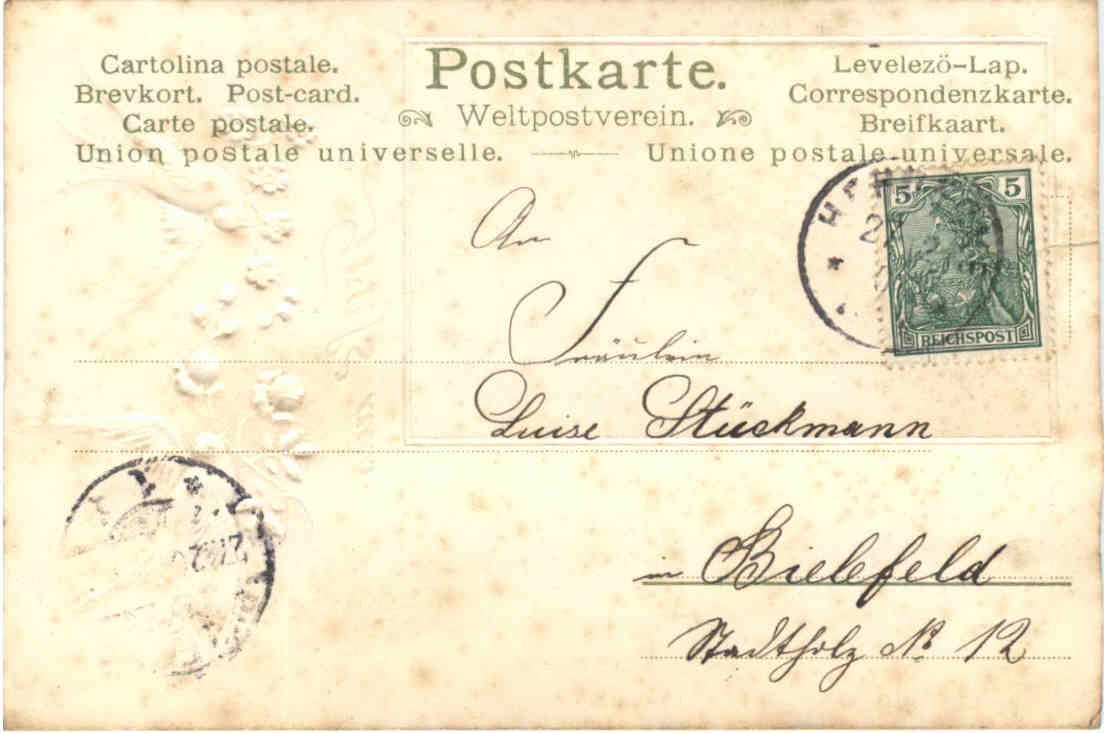 Cartolina postale.
Brevkort. Post-card.
Carte postale.
Union postale universelle.
Postkarte.
Weltpostverein.
Levelezö-Lap.
Correspondenzkarte.
Breifkaart.
Unione postale universale.
5 5
REICHSPOST
An
Fräulein
Luise Stückmann
in Bielefeld
Stadtholz No 12